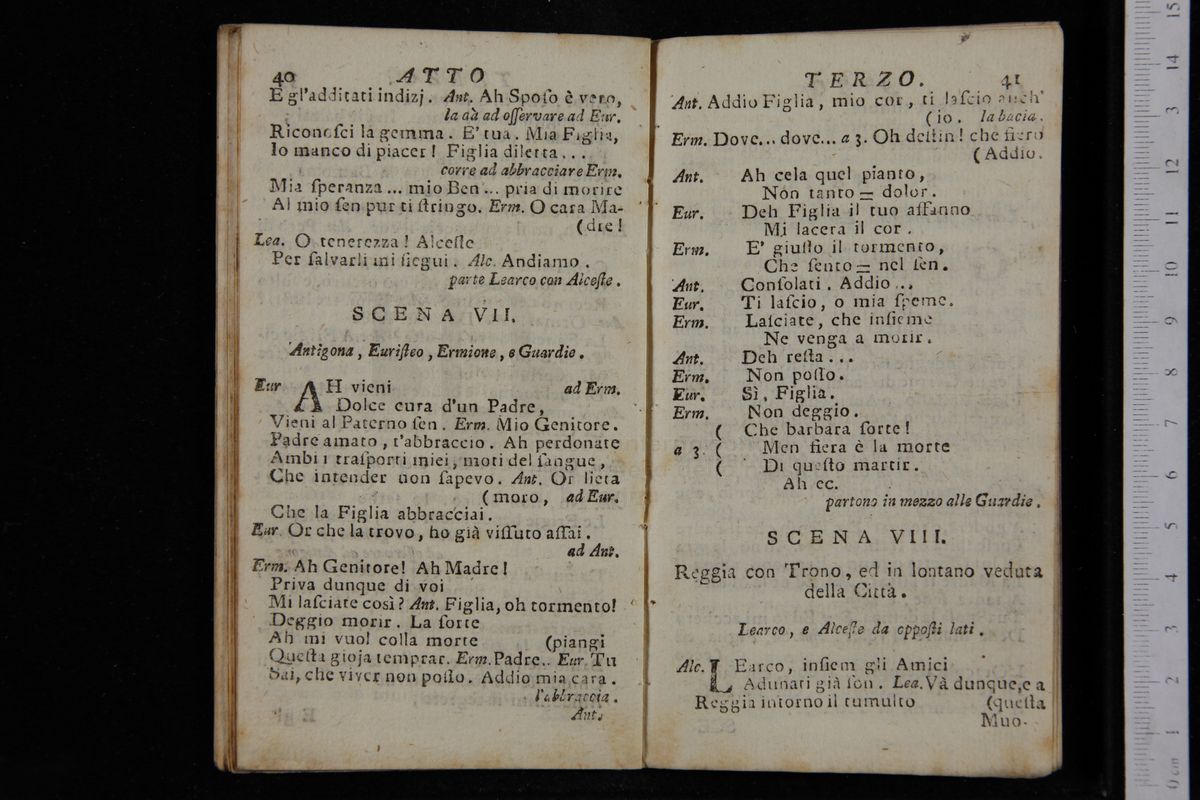 40 ATTO
E gl'additati indizj. Ant. Ah Spoſo è vero,
la dà ad oſſervare ad Eur.
Riconoſci la gemma. E' tua. Mia Figlia,
Io manco di piacer! Figlia diletta...
corre ad abbracciare Erm.
Mia ſperanza... mio Ben... pria di morire
Al mio ſen pur ti ſtringo. Erm. O cara Ma-
(dre!
Lea. O tenerezza! Alceſte
Per ſalvarli mi ſiegui. Alc. Andiamo.
parte Learco con Alceſte.
SCENA VII.
Antigona, Euriſteo, Ermione, e Guardie.
Eur AH vieni ad Erm.
Dolce cura d'un Padre,
Vieni al Paterno ſen. Erm. Mio Genitore.
Padre amato, t'abbraccio. Ah perdonate
Ambi i traſporti miei, moti del ſangue,
Che intender non ſapevo. Ant. Or lieta
(moro, ad Eur.
Che la Figlia abbracciai.
Eur. Or che la trovo, ho già viſſuto aſſai.
ad Ant.
Erm. Ah Genitore! Ah Madre!
Priva dunque di voi
Mi laſciate così? Ant. Figlia, oh tormento!
Deggio morir. La ſorte
Ah mi vuol colla morte (piangi
Queſta gioja temprar. Erm. Padre.. Eur. Tu
Sai, che viver non poſſo. Addio mia cara.
l'abbraccia.
Ant.
TERZO. 41
Ant. Addio Figlia, mio cor, ti laſcio anch'
(io. la bacia.
Erm. Dove... dove... a 3. Oh deſtin! che fiero
(Addio.
Ant. Ah cela quel pianto,
Non tanto = dolor.
Eur. Deh Figlia il tuo affanno
Mi lacera il cor.
Erm. E' giuſto il tormento,
Che ſento = nel ſen.
Ant. Conſolati. Addio...
Eur. Ti laſcio, o mia ſpeme.
Erm. Laſciate, che inſieme
Ne venga a morir.
Ant. Deh reſta...
Erm. Non poſſo.
Eur. Sì, Figlia.
Erm. Non deggio.
( Che barbara ſorte!
a 3 ( Men fiera è la morte
( Di queſto martir.
Ah ec.
partono in mezzo alle Guardie.
SCENA VIII.
Reggia con Trono, ed in lontano veduta
della Città.
Learco, e Alceſte da oppoſti lati.
Alc. LEarco, inſiem gli Amici
Adunati già ſon. Lea. Và dunque, e a
Reggia intorno il tumulto (queſta
Muo-
0 cm 1 2 3 4 5 6 7 8 9 10 11 12 13 14 15